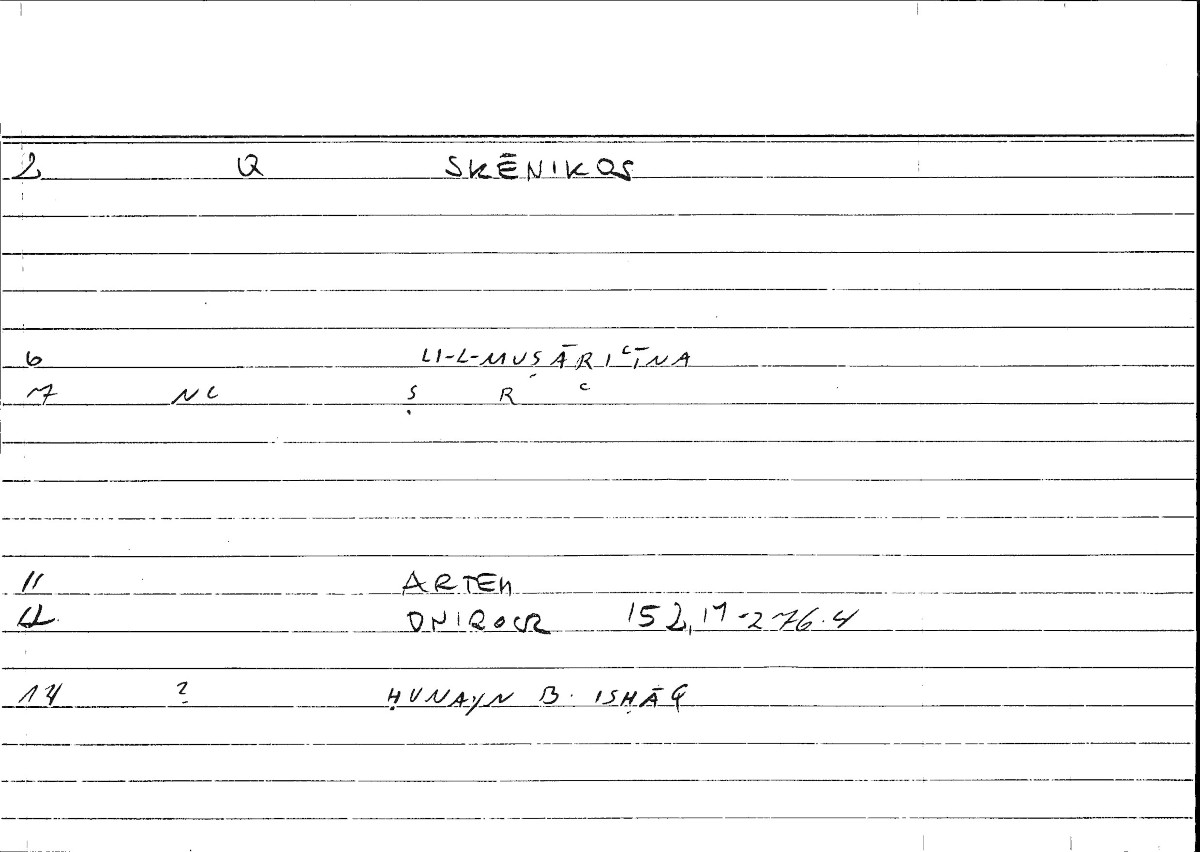 2 Q SKĒNIKOS
6 LI-L-MUṢĀRIʿĪNA
7 NC Ṣ R ʿ
11 ARTEM
12 ONIROCR 152,17-276.4
14 2 ḤUNAYN B. ISḤĀQ